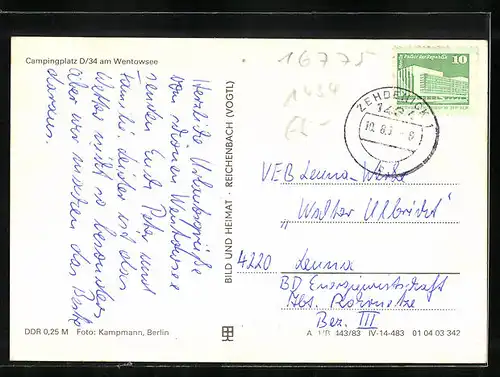 Campingplatz D/34 am Wentowsee
16775
1434
Herzliche Urlaubsgrüße
vom schönen Wentowsee
senden Euch Peter und
Familie. Leider ist das
Wetter nicht so besonders
aber wir machen das Beste
daraus.
BILD UND HEIMAT · REICHENBACH (VOGTL)
10
ZEHDENICK
1434
VEB Leuna-Werke
„Walter Ulbricht"
4220 Leuna
BD Energiewirtschaft
Abt. Rohrnetze
Bez. III
DDR 0,25 M Foto: Kampmann, Berlin
443/83 IV-14-483 01 04 03 342